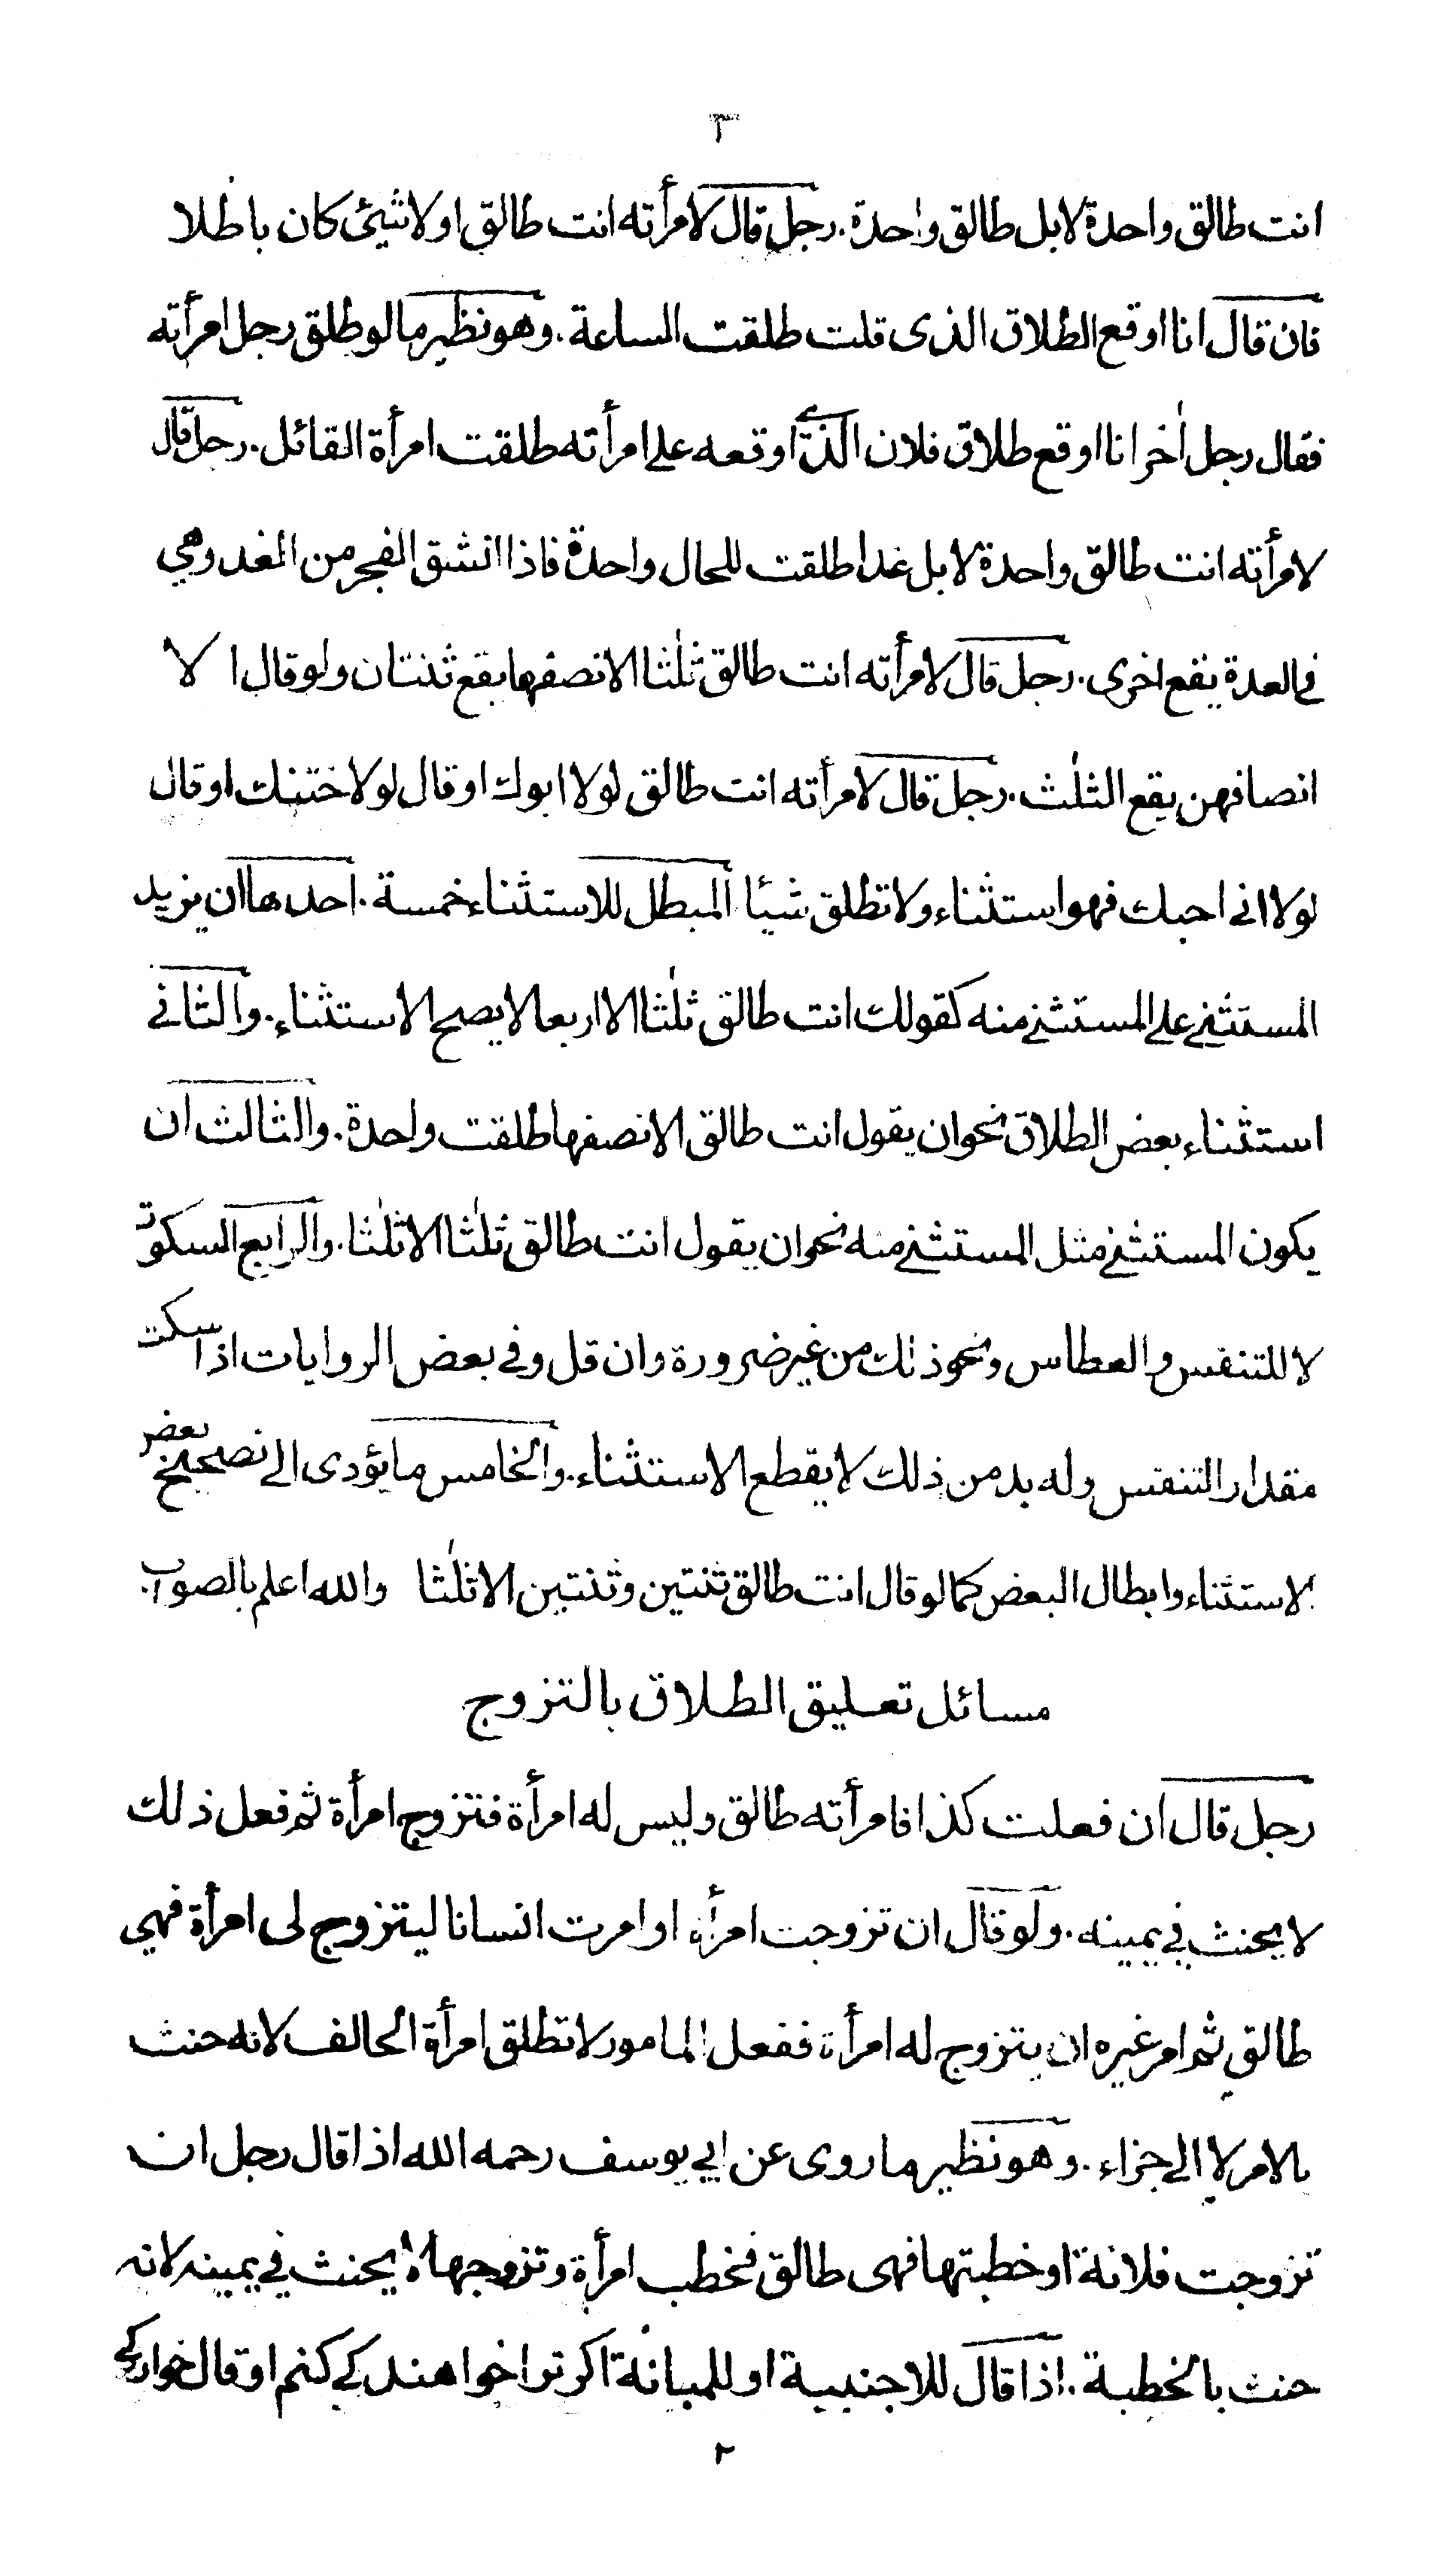 ٣
انت طالق واحدة لا بل طالق واحدة. رجل قال لامرأته انت طالق او لا شيئ كان باطلا
فان قال انا اوقع الطلاق الذى قلت طلقت الساعة. وهو نظير ما لو طلق رجل امرأته
فقال رجل اٰخر انا اوقع طلاق فلان الذي اوقعه على امرأته طلقت امرأة القائل. رجل قال
لامرأته انت طالق واحدة لا بل غدا طلقت للحال واحدة فاذا انشق الفجر من الغد وهي
في العدة يقع اخرى. رجل قال لامرأته انت طالق ثلٰثا الا نصفها يقع ثنتان ولو قال ا لا
انصافهن يقع الثلٰث. رجل قال لامرأته انت طالق لولا ابوك او قال لولا ختنك او قال
لولا انى احبك فهو استثناء ولا تطلق شيئا المبطل للاستثناء خمسة. احدها ان يزيد
المستثنى على المستثنى منه كقولك انت طالق ثلٰثا الا اربعا لا يصح الاستثناء. والثانى
استثناء بعض الطلاق نحو ان يقول انت طالق الا نصفها طلقت واحدة. والثالث ان
يكون المستثنى مثل المستثنى منه نحو ان يقول انت طالق ثلٰثا الا ثلٰثا. والرابع السكوت
لا للتنفس والعطاس ونحو ذلك من غير ضرورة وان قل وفي بعض الروايات اذا سكت
مقدار التنفس وله بد من ذلك لا يقطع الاستثناء. والخامس ما يؤدى الى تصحيح بعض
الاستثناء وابطال البعض كما لو قال انت طالق ثنتين وثنتين الا ثلٰثا والله اعلم بالصواب.
مسائل تعليق الطلاق بالتزوج
رجل قال ان فعلت كذا فامرأته طالق وليس له امرأة فتزوج امرأة ثم فعل ذلك
لا يحنث في يمينه. ولو قال ان تزوجت امرأة او امرت انسانا ليتزوج لى امرأة فهي
طالق ثم امر غيره ان يتزوج له امرأة ففعل المامور لا تطلق امرأة الحالف لانه حنث
بالامر لا الى جزاء. وهو نظير ما روى عن ابي يوسف رحمه الله اذا قال رجل ان
تزوجت فلانة او خطبتها فهى طالق فخطب امرأة وتزوجها لا يحنث في يمينه لانه
حنث بالخطبة. اذا قال للاجنبية او للمبانة اكر ترا خواهندكى كنم او قال خواركى
٢